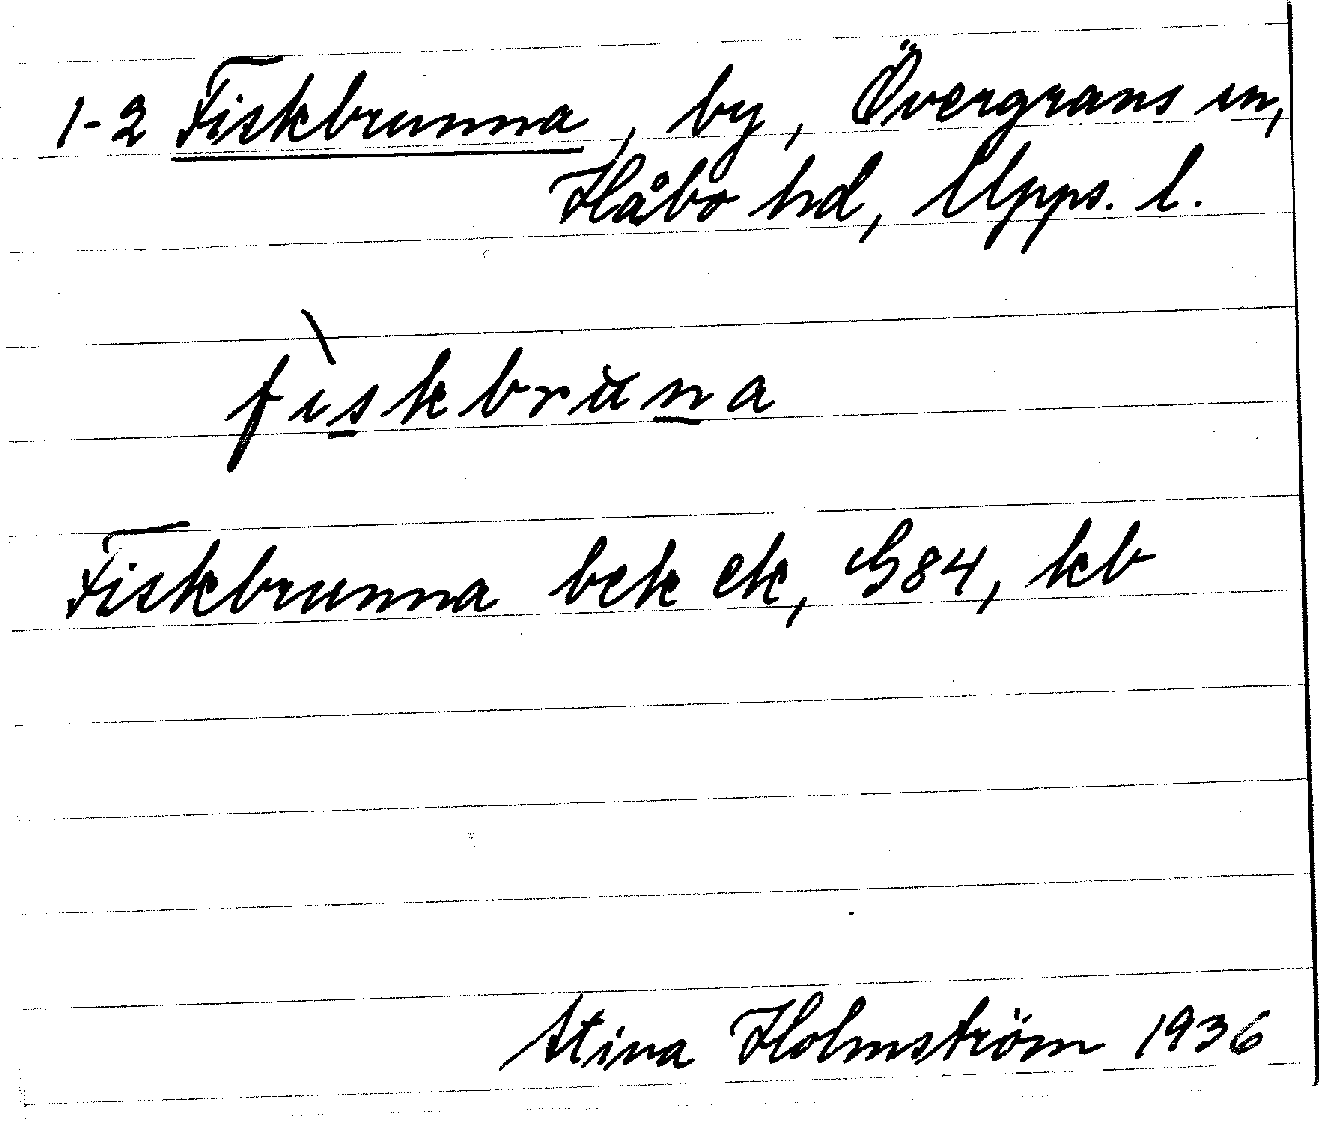 1-2 Fiskbrunna, by, Övergrans sn,
Håbo hd, Upps. l.
fìskbruna
Fiskbrunna bek ek, G84, kb
Stina Holmström 1936